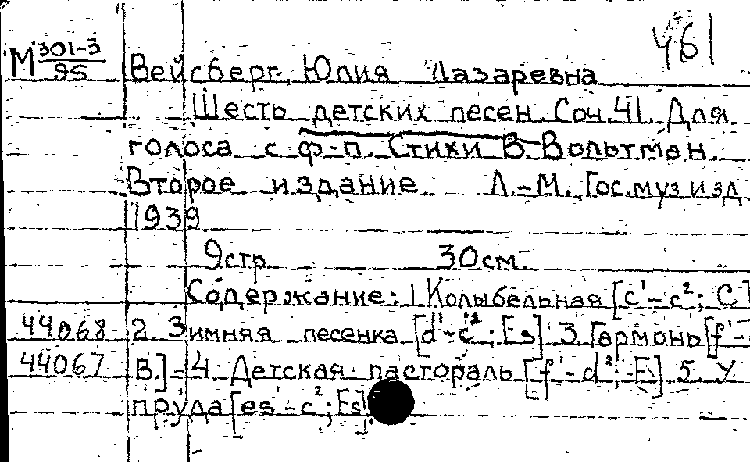 461
М 301-3/95 Вейсберг, Юлия Лазаревна
Шесть детских песен. Соч. 41. Для
голоса с ф-п. Стихи В. Вольтман.
Второе издание Л.-М. Гос.муз.изд
1939
9стр. 30см.
Содержание: 1 Колыбельная [c¹-c²; C]
44068 2. Зимняя песенка [d¹-c²; Es] 3. Гармонь [f¹-
44067 B.] - 4. Детская пастораль [f¹-d²; F] 5. У
пруда [es¹-c²; Es]